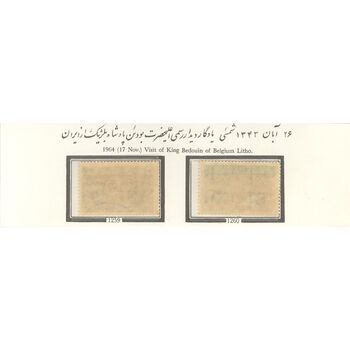 ۲۶ آبان ۱۳۴۳ شمسی یادگار دیدار رسمی اعلیحضرت بودئن پادشاه بلژیک از ایران
1964 (17 Nov.) Visit of King Bedouin of Belgium Litho.
1259 1260